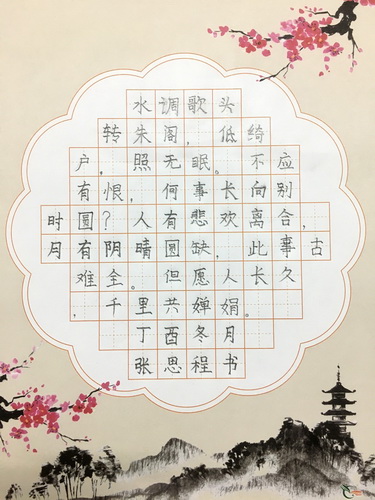 水调歌头
转朱阁，低绮
户，照无眠。不应
有恨，何事长向别
时圆？人有悲欢离合，
月有阴晴圆缺，此事古
难全。但愿人长久
，千里共婵娟。
丁酉冬月
张思程书